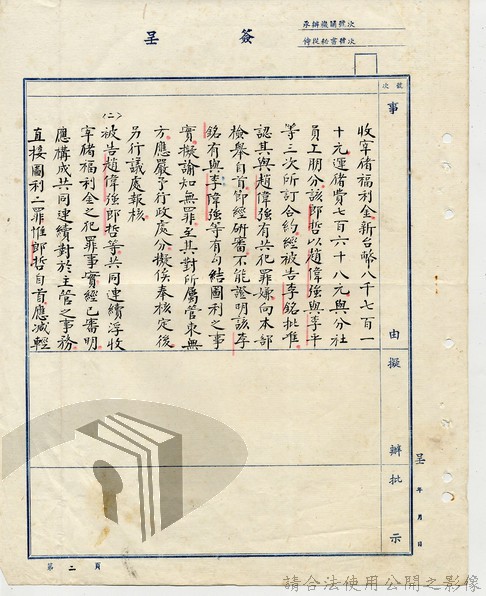 簽呈
承辦機關號次
傳從秘書號次
號次
事由
擬辦
批示
收寄儲福利金新台幣八千七百一
十元運儲費七百六十八元與分社
員工朋分該郎哲以趙偉強與李平
等三次所訂合約經被告李銘批准
認其與趙偉強有共犯罪嫌向本部
檢舉自首節經研審不能證明該李
銘有與李偉強等有勾結圖利之事
實擬諭知無罪至其對所屬管束無
方應嚴予行政處分擬俟奉核定後
另行議處報核
(二)被告趙偉強郎哲等共同連續浮收
寄儲福利金之犯罪事實經已審明
應構成共同連續對於主管之事務
直接圖利之罪惟郎哲自首應減輕
呈 年 月 日
第二頁
請合法使用公開之影像